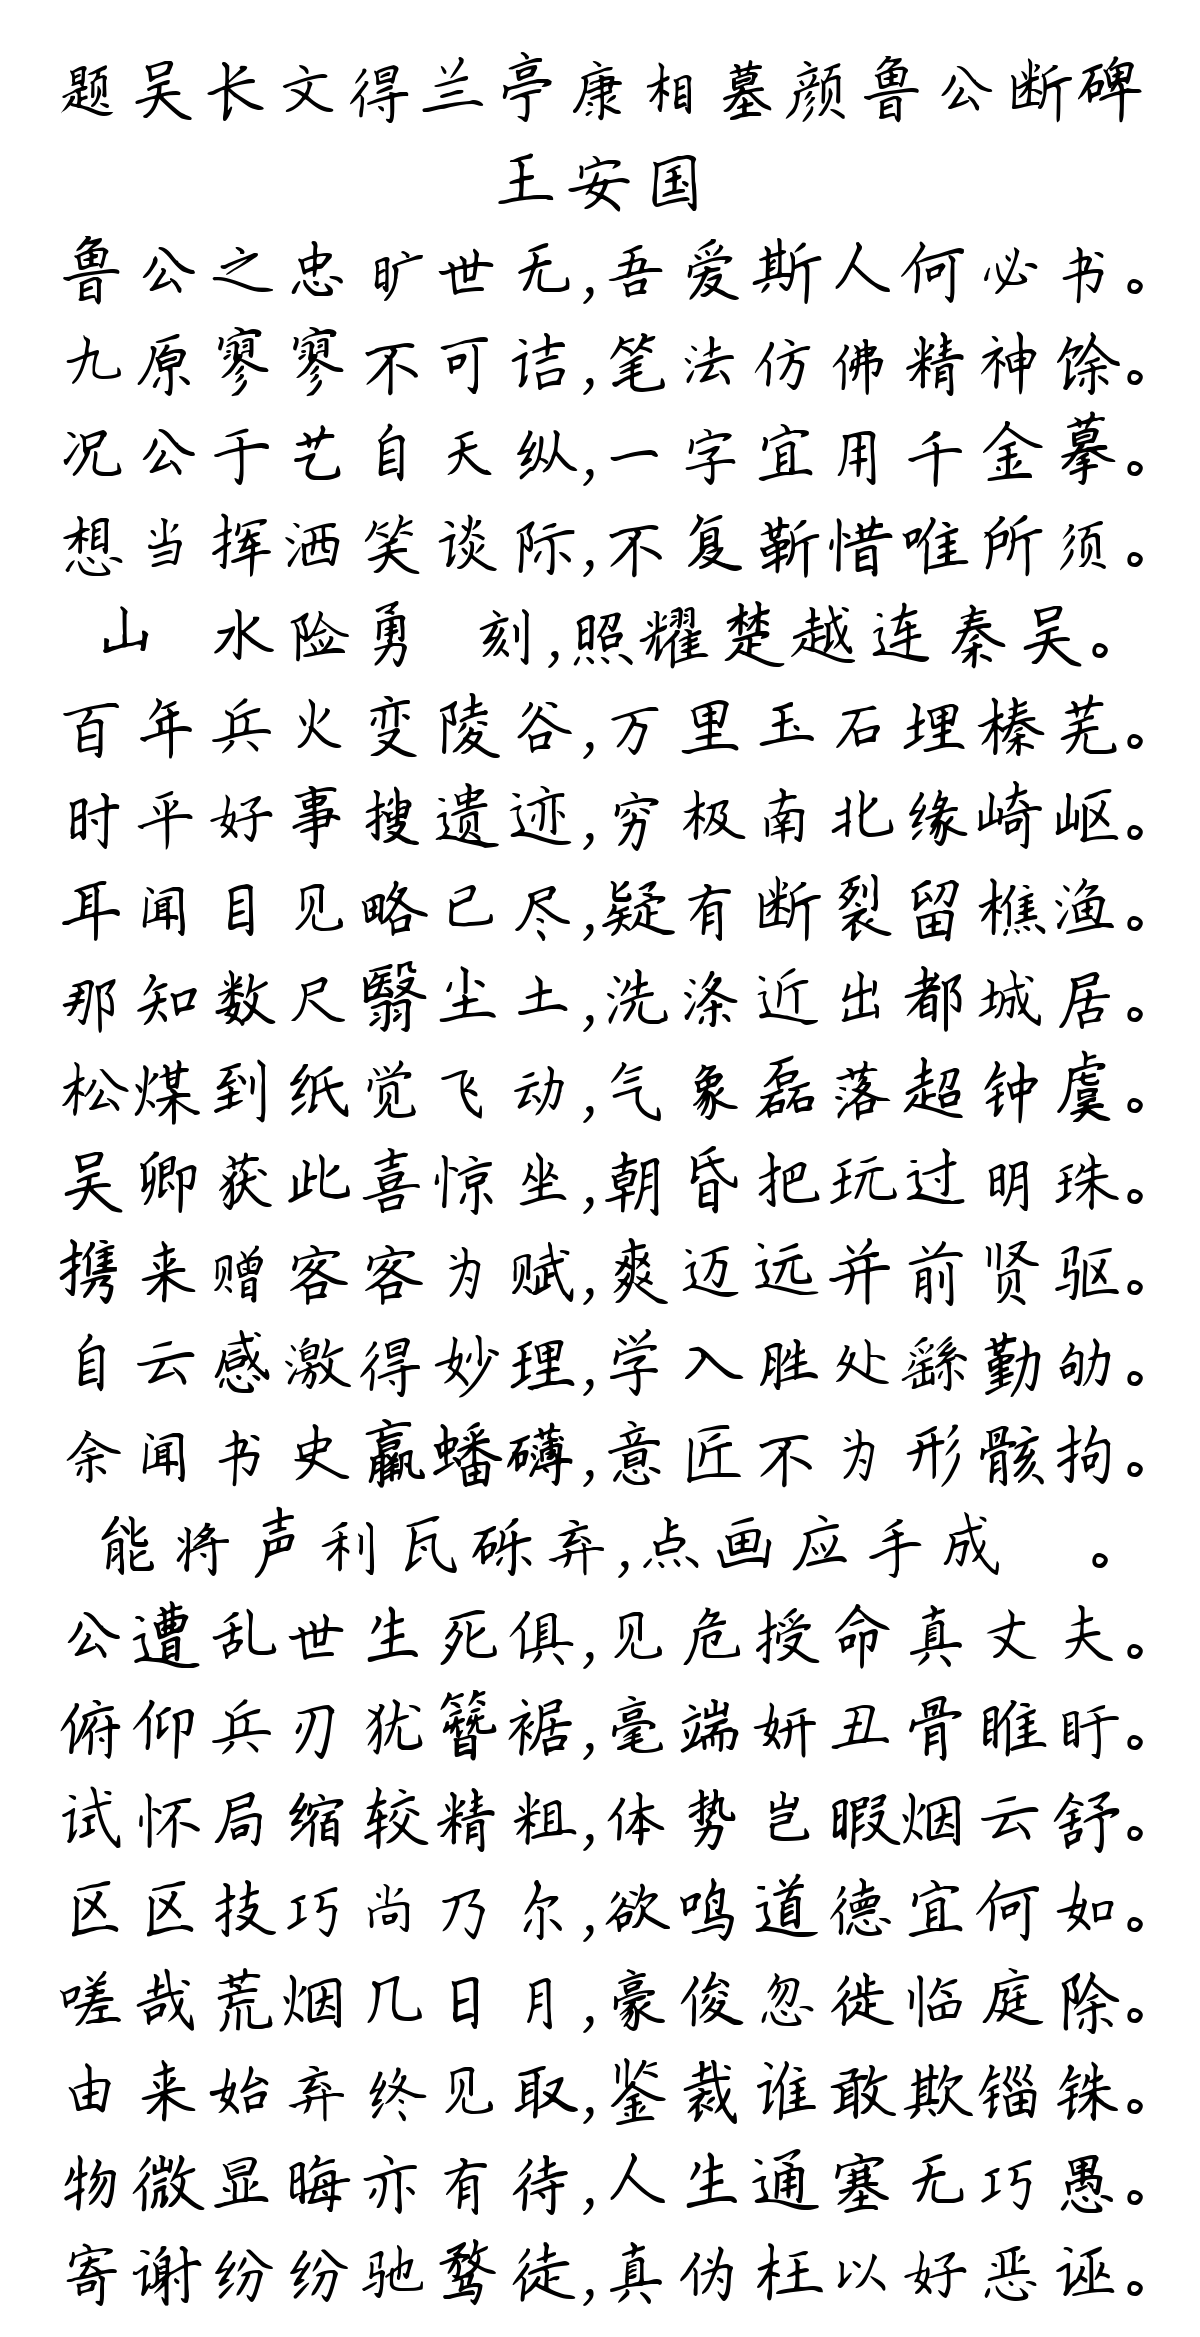 题吴长文得兰亭康相墓颜鲁公断碑
王安国
鲁公之忠旷世无,吾爱斯人何必书。
九原寥寥不可诘,笔法仿佛精神馀。
况公于艺自天纵,一字宜用千金摹。
想当挥洒笑谈际,不复靳惜唯所须。
山 水险勇 刻,照耀楚越连秦吴。
百年兵火变陵谷,万里玉石埋榛芜。
时平好事搜遗迹,穷极南北缘崎岖。
耳闻目见略已尽,疑有断裂留樵渔。
那知数尺翳尘土,洗涤近出都城居。
松煤到纸觉飞动,气象磊落超钟虞。
吴卿获此喜惊坐,朝昏把玩过明珠。
携来赠客客为赋,爽迈远并前贤驱。
自云感激得妙理,学入胜处繇勤劬。
余闻书史羸蟠礴,意匠不为形骸拘。
能将声利瓦砾弃,点画应手成 。
公遭乱世生死俱,见危授命真丈夫。
俯仰兵刃犹簪裾,毫端妍丑骨睢盱。
试怀局缩较精粗,体势岂暇烟云舒。
区区技巧尚乃尔,欲鸣道德宜何如。
嗟哉荒烟几日月,豪俊忽徙临庭除。
由来始弃终见取,鉴裁谁敢欺锱铢。
物微显晦亦有待,人生通塞无巧愚。
寄谢纷纷驰鹜徒,真伪枉以好恶诬。